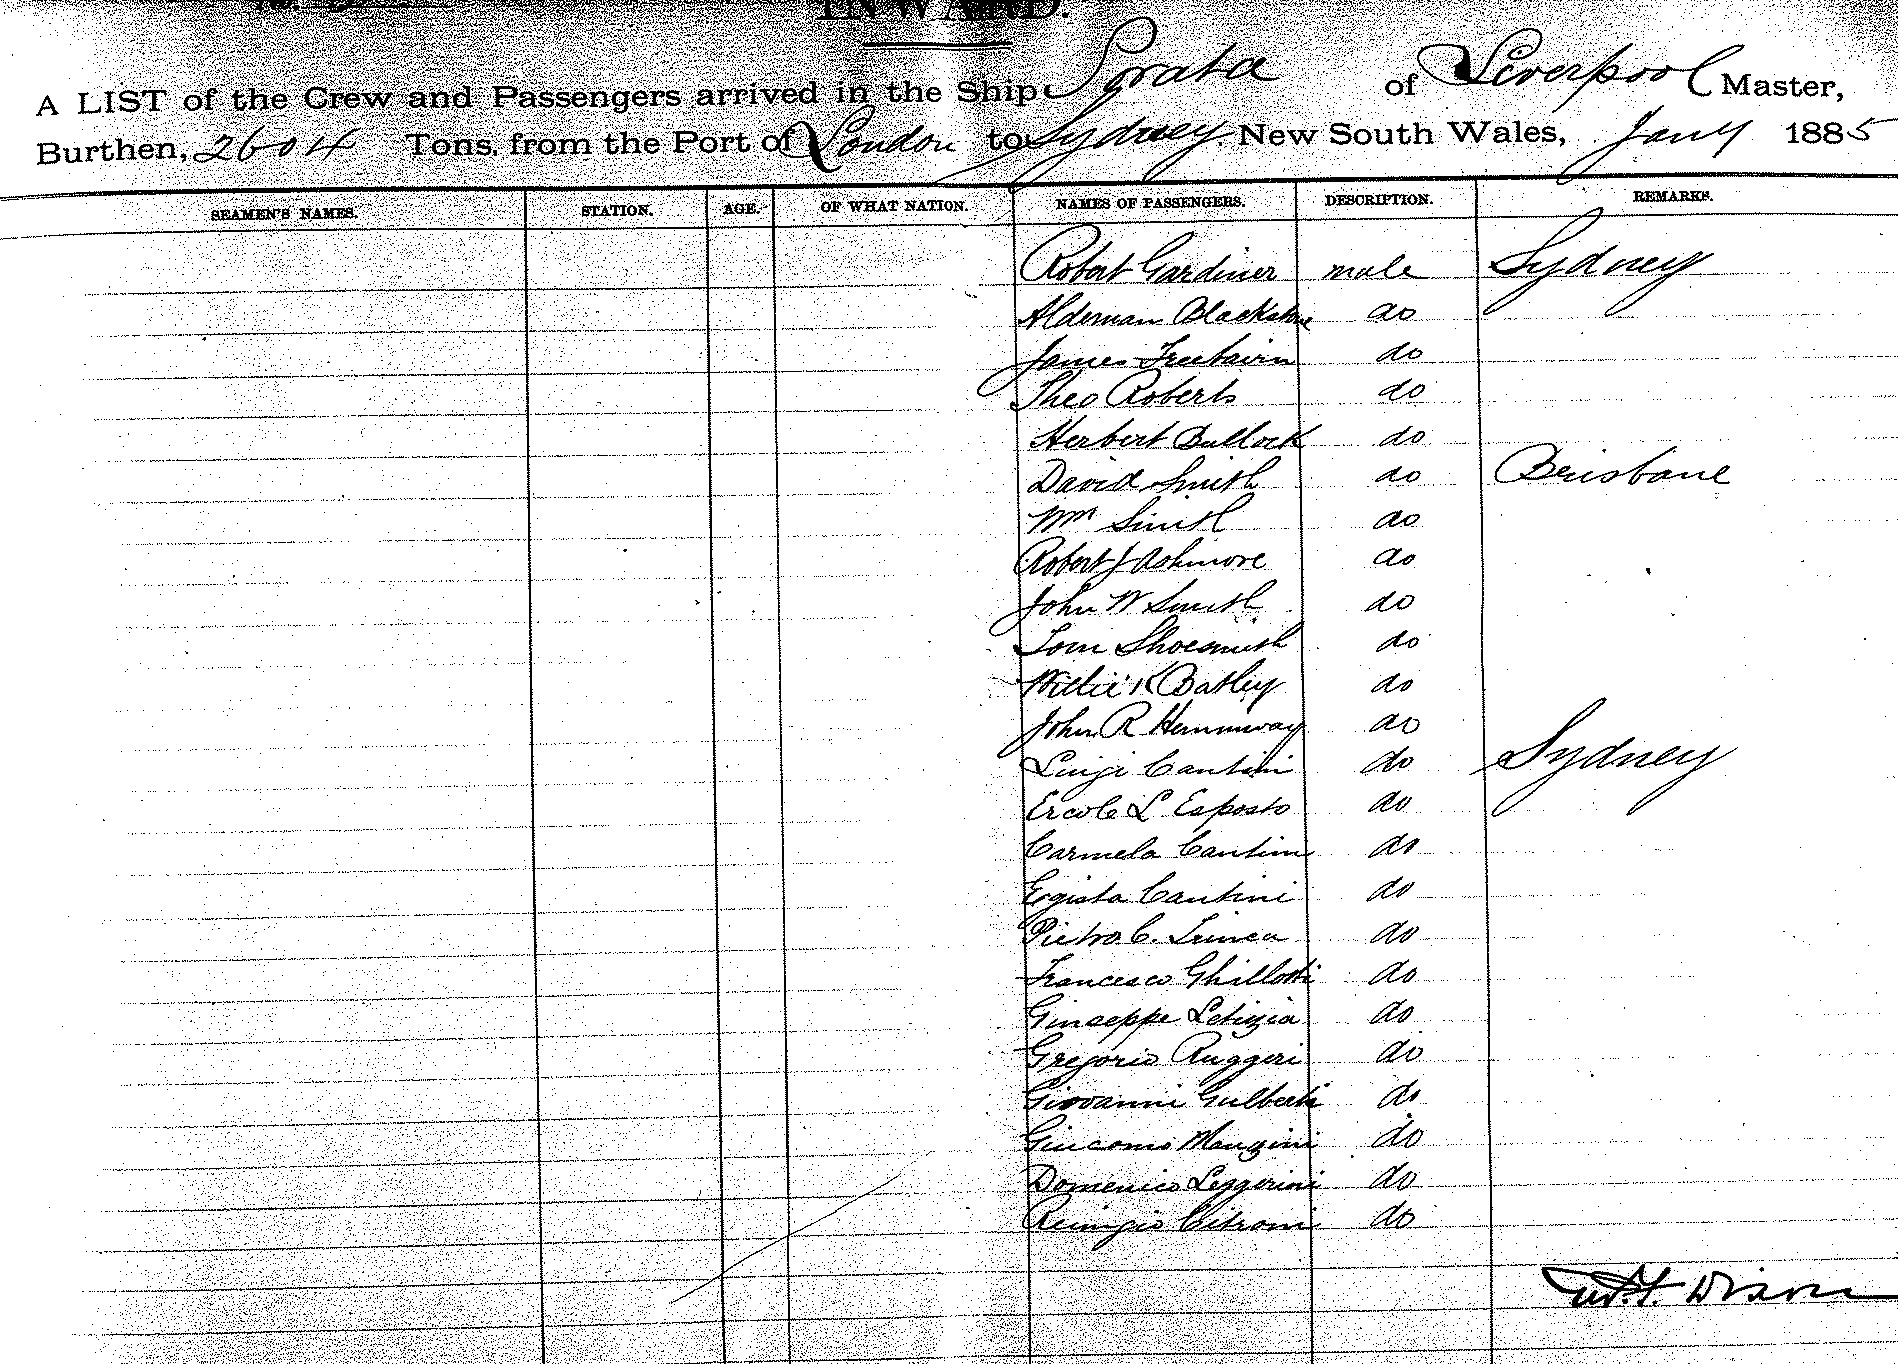 INWARD.
A LIST of the Crew and Passengers arrived in the Ship Sorata of Liverpool Master,
Burthen, 2604 Tons, from the Port of London to Sydney New South Wales, Jany 1885
SEAMEN'S NAMES. STATION. AGE. OF WHAT NATION. NAMES OF PASSENGERS. DESCRIPTION. REMARKS.
Robert Gardiner male Sydney
Alderman Blackstone do
James Freebairn do
Theo Roberts do
Herbert Bullock do
David Smith do Brisbane
Wm Smith do
Robert J Ashmore do
John W Smith do
Tom Shoesmith do
Willie K Batley do
John R Hemmway do
Luigi Cantini do Sydney
Ercole L Esposto do
Carmela Cantini do
Egista Cantini do
Pietro C. Trinca do
Francesco Ghillotti do
Giuseppe Letizia do
Gregorio Ruggeri do
Giovanni Gulberti do
Giacomo Manzini do
Domenico Leggerini do
Remigio Citroni do
Dixon